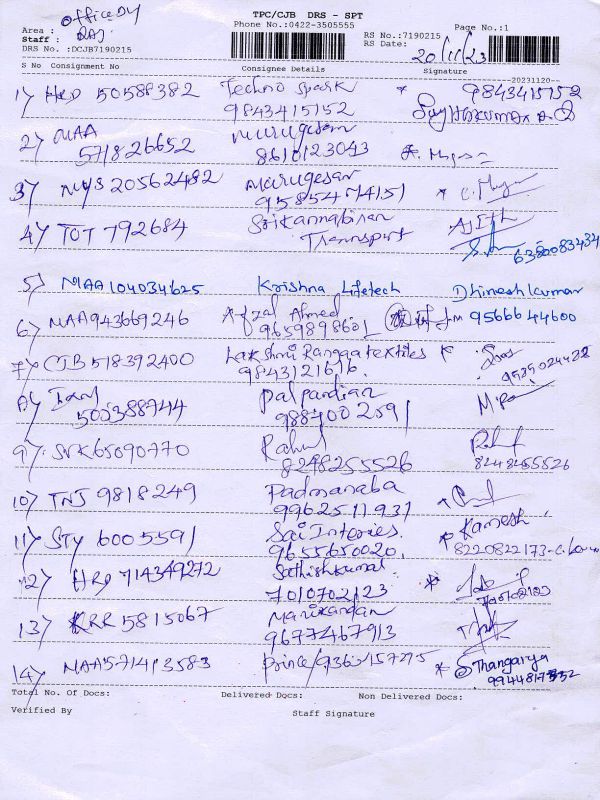 TPC/CJB DRS - SPT
Phone No.:0422-3505555
Page No.:1
Area : Office Dly
Staff : RAJ
DRS No. :DCJB7190215
RS No.:7190215
RS Date: 20/11/23
S No Consignment No Consignee Details Signature
20231120
1) HRD 50588382 Techno Spark 9843415152
9843415152
2) MAA Murugesan
571826652 8610123043
3) MYS 205624982 Murugesan
9585474151
4) TOT 792684 Srikannabiran Ajith
Transport 6380083434
5) MAA104034625 Krishna Lifetech Dhineshkumar
6) MAA943669246 Afzal Ahmed 9566644600
9659898601
7) CJB 518392400 Lakshmi Rangaa textiles
9843121616
8) 500388744 Palpandian
9884002591
9) SVK65090770 Rahul
8248255526
10) TNJ 9818249 Padmanaba
9962511937
11) STY 6005591 Sai Interies. Kamesh
9655650020. 8220822173
12) HRD 714349272 Sathishkumar
7010702123
13) KRR 5815067 Manikandan
9677467913
14) MAA571413583 Prince/9360157295 Thangarya
Total No. Of Docs: Delivered Docs: Non Delivered Docs:
Verified By Staff Signature